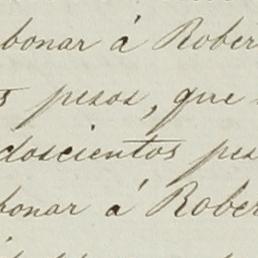 bonar á Rober
s pesos, que
doscientos pes
bonar á Rober